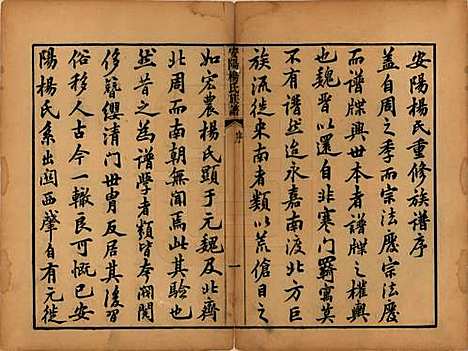 安陽楊氏重修族譜序
蓋自周之季而宗法廢宗法廢
而譜牒興世本者譜牒之權輿
也魏晉以還自非寒門羈寓莫
不有譜然迨永嘉南渡北方巨
族流徙東南者類以荒傖目之
安陽楊氏族譜 序 一
如宏農楊氏顯于元魏及北齊
北周而南朝無聞焉此其驗也
然昔之為譜學者類皆奉閥閱
侈簪纓清門世胄反居其後習
俗移人古今一轍良可慨已安
陽楊氏系出關西肇自有元徙